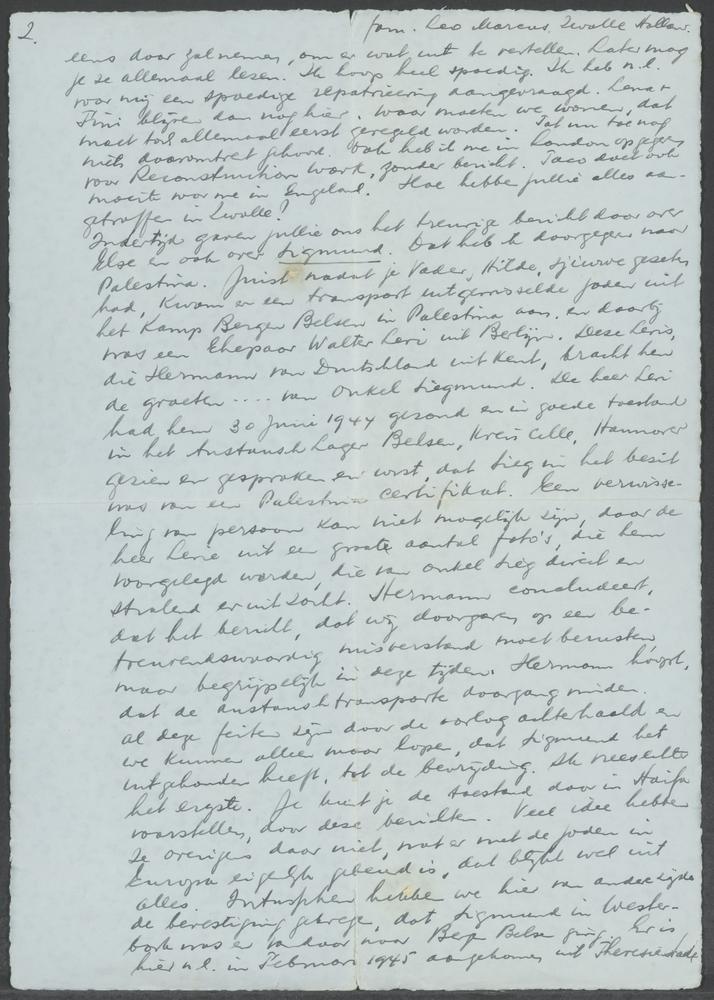 2.
fam. Leo Marcus, Zwolle Holland.
eens door zal nemen, om er wat uit te vertellen. Later mag
je ze allemaal lezen. Ik hoop heel spoedig. Ik heb n.l.
voor mij een spoedige repatrieering aangevraagd. Lena +
Fini blijven dan nog hier. Waar moeten we wonen, dat
moet toch allemaal eerst geregeld worden. Tot nu toe nog
niets daaromtrent gehoord. Ook heb ik me in London opgegeven
voor Reconstruction work, zonder bericht. Jaco doet ook
moeite voor me in Engeland. Hoe hebben jullie alles aan-
getroffen in Zwolle?
Indertijd gaven jullie ons het treurige bericht door over
Else en ook over Sigmund. Dat heb ik doorgegeven naar
Palestina. Juist nadat je Vader, Hilde, gezeten
had, kwam er een transport uitgewisselde joden uit
het Kamp Bergen Belsen in Palestina aan, en daarbij
was een Ehepaar Walter Levi uit Berlijn. Deze Levis,
die Hermann van Duitschland uit kent, bracht hen
de groeten .... van Onkel Siegmund. De heer Levi
had hem 30 Juni 1944 gezond en in goede toestand
in het Austausch Lager Belsen, Kreis Celle, Hannover
gezien en gesproken en wist, dat Sieg in het bezit
was van een Palestina certifikat. Een verwisse-
ling van persoon kan niet mogelijk zijn, daar de
heer Levie uit een groote aantal foto's, die hem
voorgelegd werden, die van onkel Sieg direct en
stralend er uit zocht. Hermann concludeert,
dat het bericht, dat wij doorgaven op een be-
treurenswaardig misverstand moet berusten,
maar begrijpelijk in deze tijden. Hermann hoopt,
dat de austauschtransporte doorgang vinden.
Al deze feiten zijn door de oorlog achterhaald en
we kunnen alleen maar hopen, dat Sigmund het
uitgehouden heeft, tot de bevrijding. Ik vrees echter
het ergste. Je kunt je de toestand daar in Haifa
voorstellen, door deze berichten. Veel idee hebben
ze overigens daar niet, wat er met de joden in
Europa eigelijk gebeurd is, dat blijkt wel uit
alles. Intusschen hebben we hier van andere zijde
de bevestiging gekregen, dat Sigmund in Wester-
bork was en vandaar naar Bergen Belsen ging. Er is
hier n.l. in Februari 1945 aangekomen uit Theresienstadt